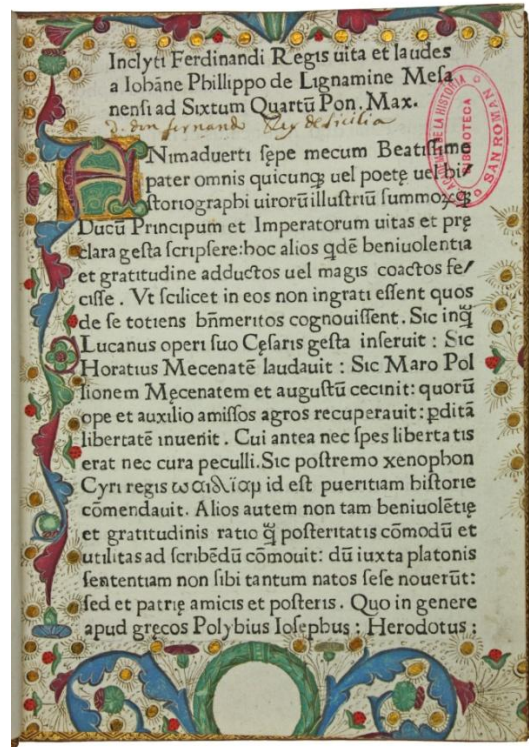 Inclyti Ferdinandi Regis uita et laudes
a Iohāne Phillippo de Lignamine Mesa
nensi ad Sixtum Quartū Pon. Max.
d. don fernand Rey de sicilia
ANimaduerti sępe mecum Beatissime
pater omnis quicunqꝫ uel poetę uel hi
storiographi uirorū illustriū summoꝝqꝫ
Ducū Principum et Imperatorum uitas et prę
clara gesta scripsere: hoc alios qdē beniuolentia
et gratitudine adductos uel magis coactos fe/
cisse . Vt scilicet in eos non ingrati essent quos
de se totiens bn̄meritos cognouissent. Sic inq̄
Lucanus operi suo Cęsaris gesta inseruit : Sic
Horatius Mecenatē laudauit : Sic Maro Pol
lionem Męcenatem et augustū cecinit: quorū
ope et auxilio amissos agros recuperauit: ꝑditā
libertatē inuenit . Cui antea nec spes liberta tis
erat nec cura peculli. Sic postremo xenophon
Cyri regis id est pueritiam historie
cōmendauit. Alios autem non tam beniuolētię
et gratitudinis ratio q̄ posteritatis cōmodū et
utilitas ad scribēdū cōmouit: dū iuxta platonis
sententiam non sibi tantum natos sese nouerūt:
sed et patrię amicis et posteris . Quo in genere
apud gręcos Polybius Iosephus : Herodotus :
ACADEMIA DE LA HISTORIA
BIBLIOTECA
SAN ROMAN